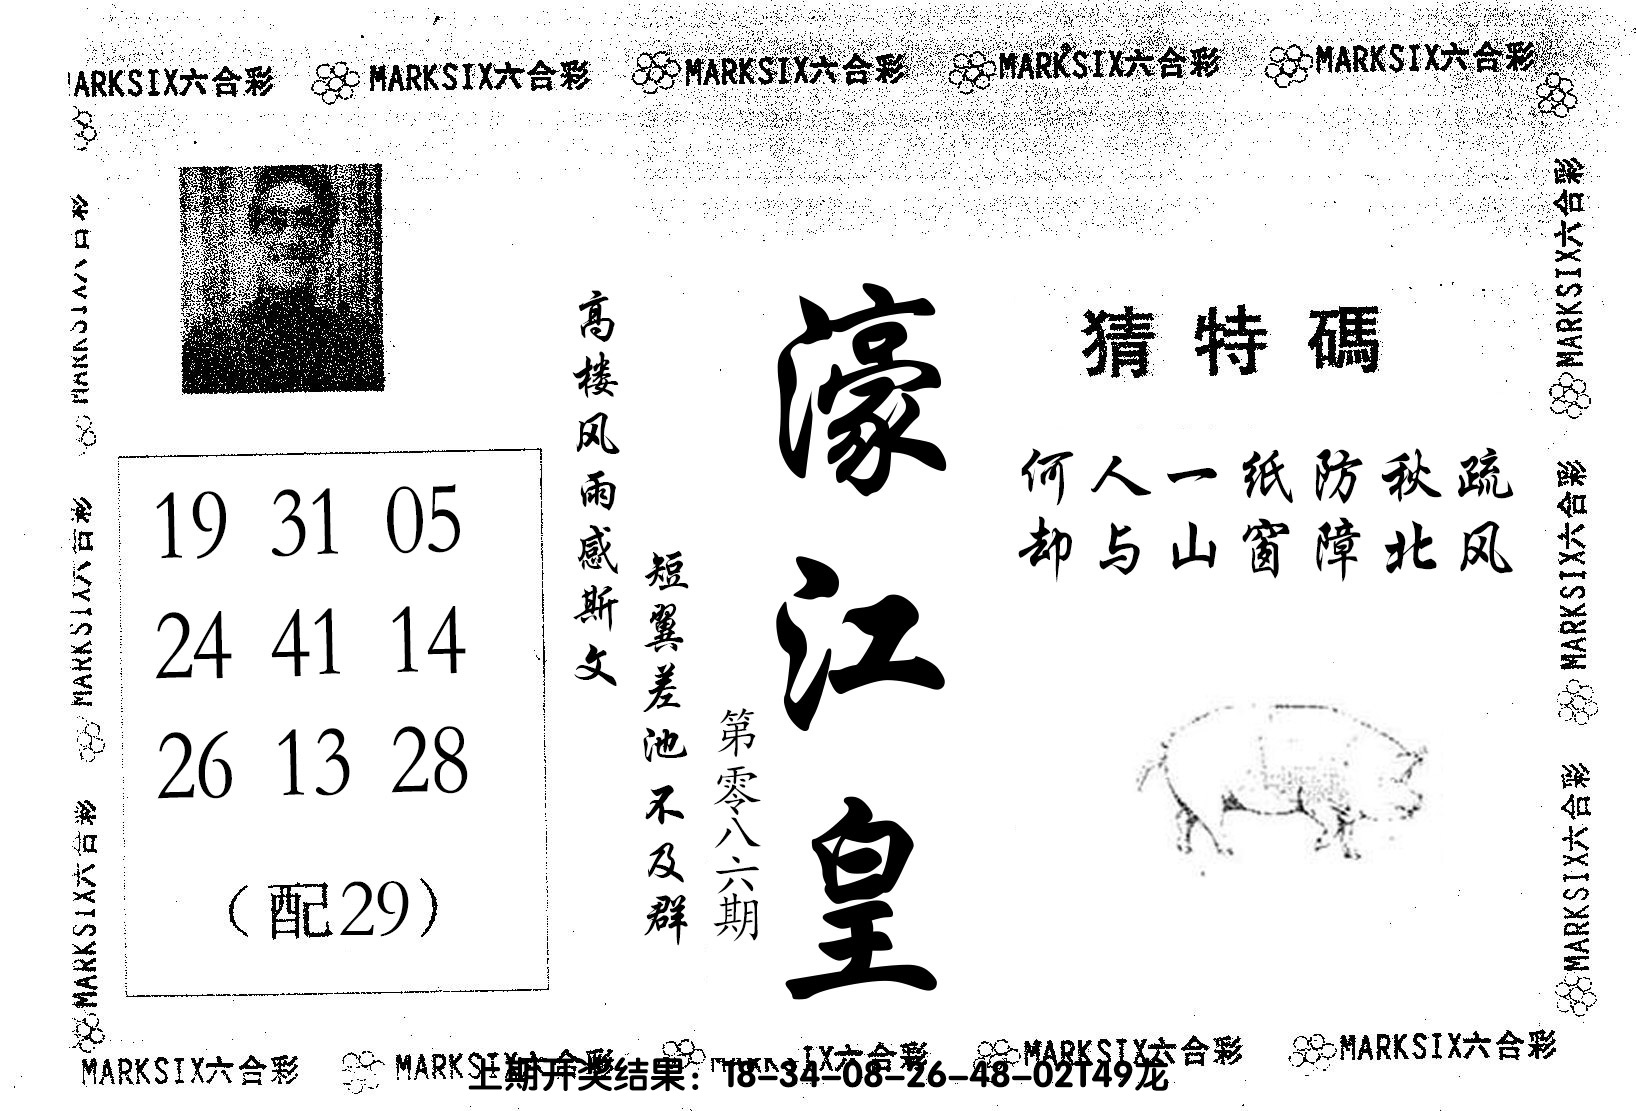 MARKSIX六合彩 MARKSIX六合彩 MARKSIX六合彩 MARKSIX六合彩
MARKSIX六合彩
MARKSIX六合彩
MARKSIX六合彩
MARKSIX六合彩
MARKSIX六合彩
猜特碼
何人一纸防秋疏
却与山窗障北风
濠江皇
第零八六期
高楼风雨感斯文
短翼差池不及群
19 31 05
24 41 14
26 13 28
（配29）
MARKSIX六合彩 MARKSIX六合彩 六合彩 MARKSIX六合彩 MARKSIX六合彩
上期开奖结果：18-34-08-26-48-02T49龙